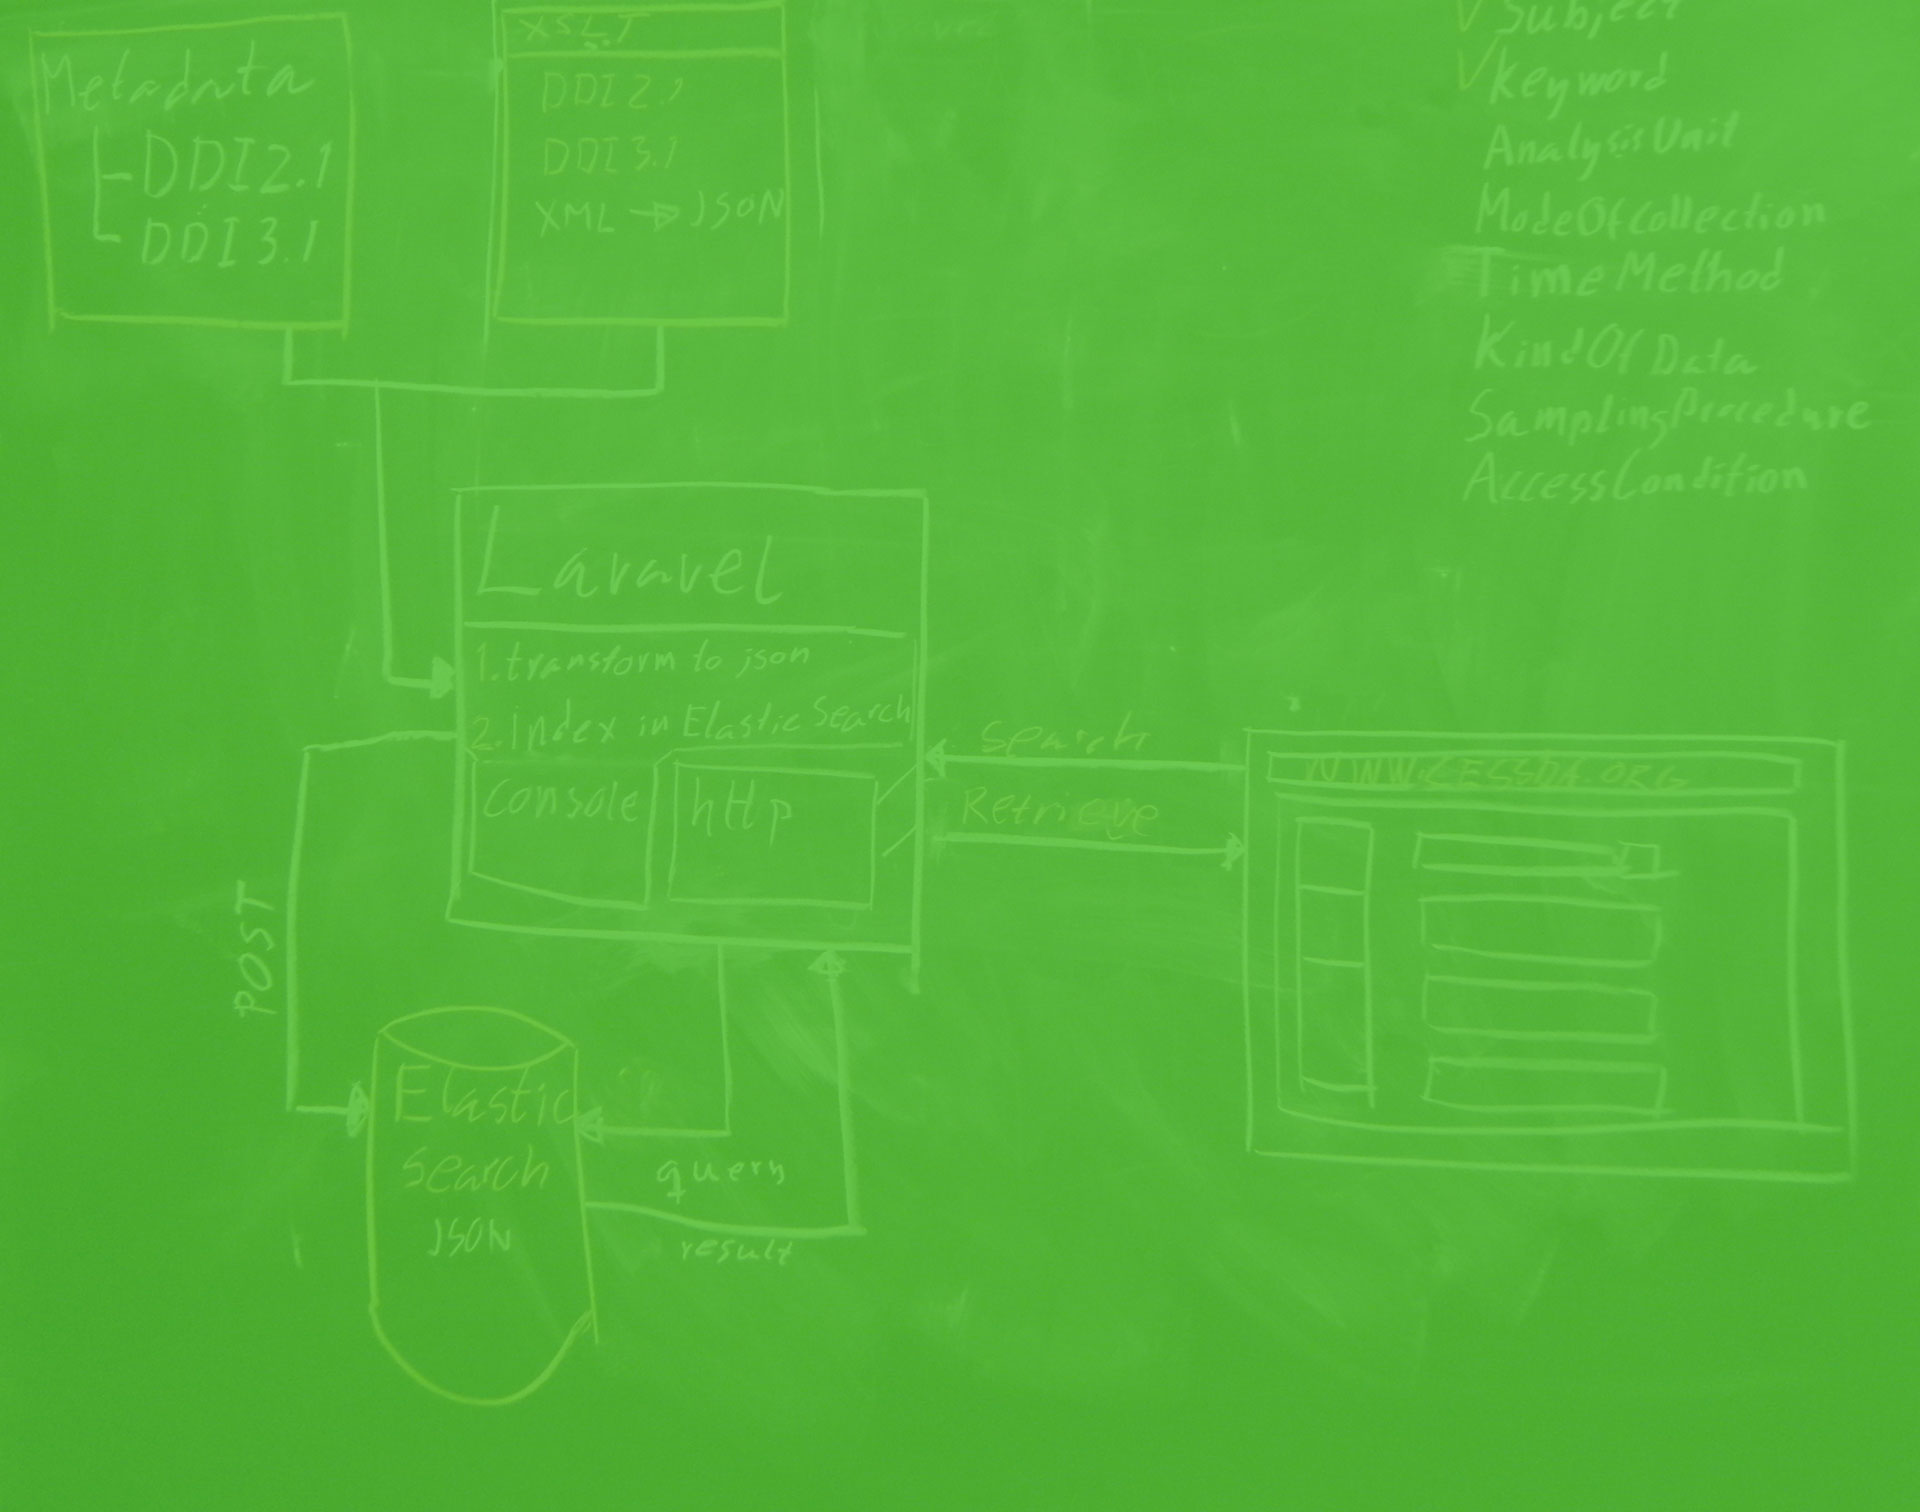 Metadata
DDI2.1
DDI3.1
XSLT
DDI2.1
DDI3.1
XML → JSON
Subject
Keyword
AnalysisUnit
ModeOfCollection
TimeMethod
KindOfData
SamplingProcedure
AccessCondition
Laravel
1. transform to json
2. Index in Elastic Search
console
http
Search
Retrieve
WWW.CESSDA.ORG
POST
Elastic
Search
JSON
query
result